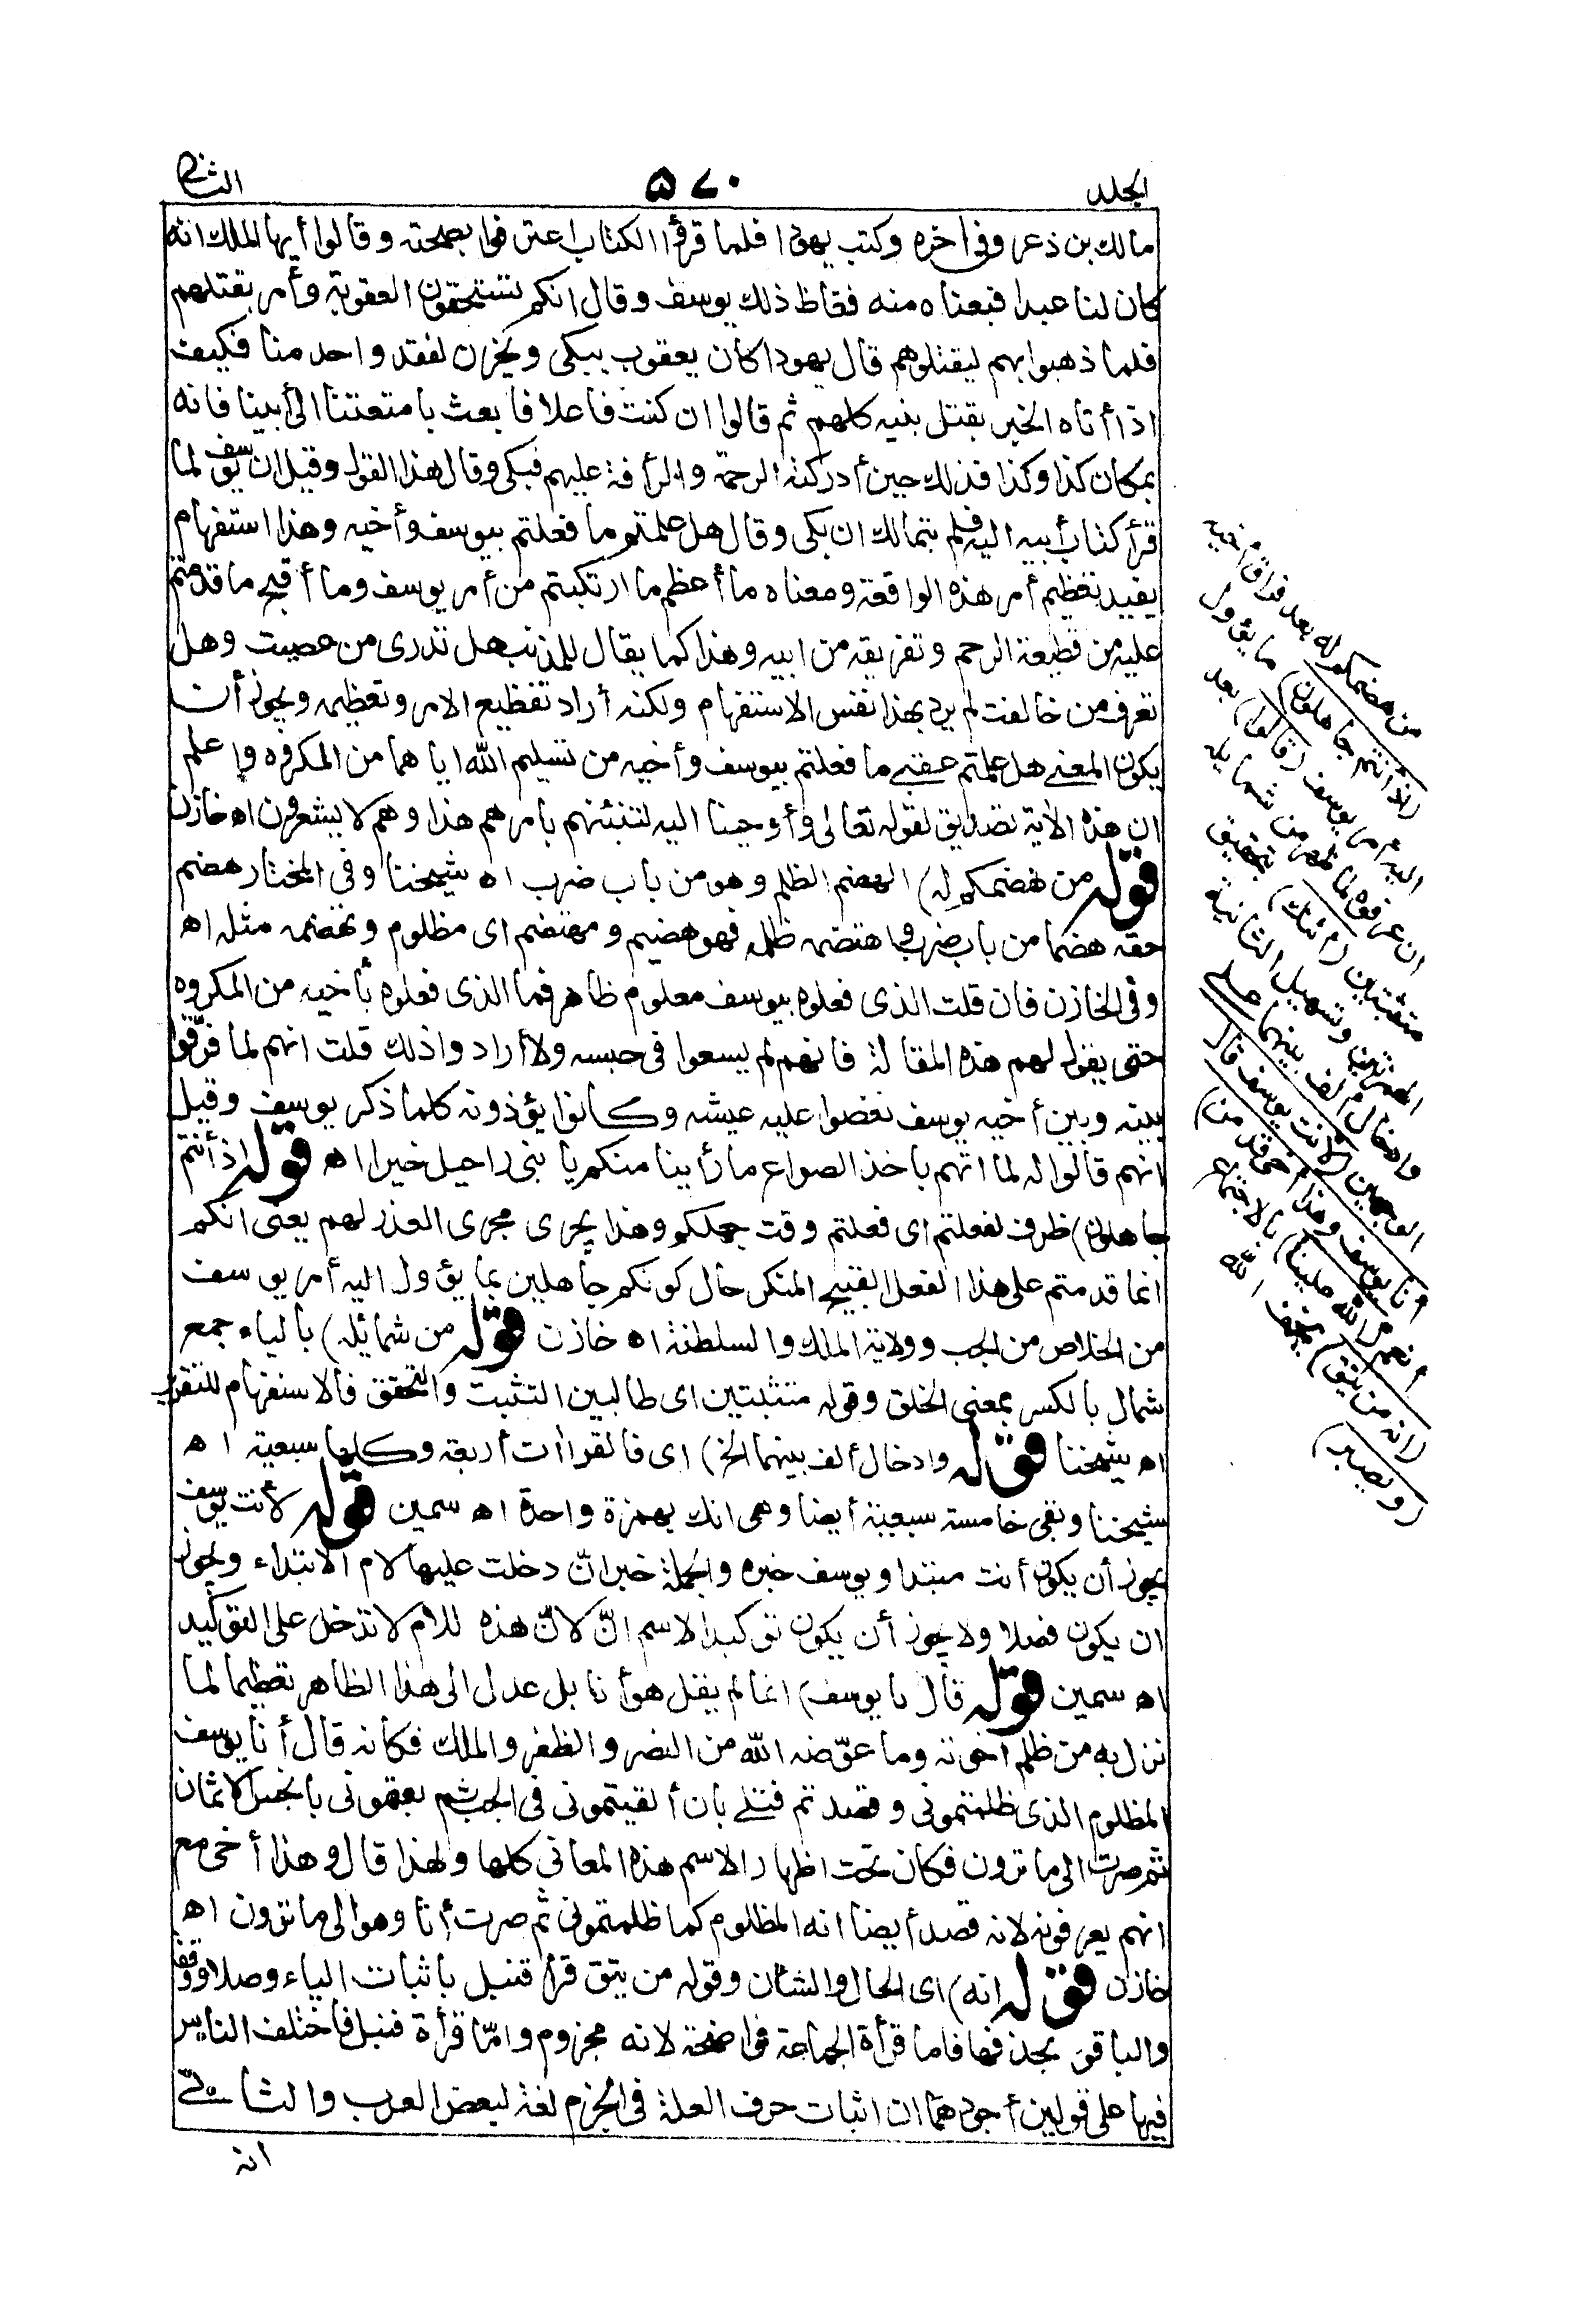 الجلد
٥٧٠
الثاني
مالك بن ذعر وفي اخره وكتب يهودا فلما قرؤا الكتاب اعترفوا بصحته وقالوا أيها الملك انه
كان لنا عبدا فبعناه منه فغاظ ذلك يوسف وقال انكم تستحقون العقوبة وأمر بقتلهم
فلما ذهبوا بهم ليقتلوهم قال يهودا كان يعقوب يبكى ويحزن لفقد واحد منا فكيف
اذا أتاه الخبر بقتل بنيه كلهم ثم قالوا ان كنت فاعلا فابعث بامتعتنا الى أبينا فانه
بمكان كذا وكذا فذلك حين أدركته الرحمة والرأفة عليهم فبكى وقال هذا القول وقيل ان يوسف لما
قرأ كتاب أبيه اليه فلم يتمالك ان بكى وقال هل علمتم ما فعلتم بيوسف وأخيه وهذا استفهام
يفيد تعظيم أمر هذه الواقعة ومعناه ما أعظم ما ارتكبتم من أمر يوسف وما أقبح ما قدمتم
عليه من قطيعة الرحم وتفريقه من ابيه وهذا كما يقال للمذنب هل تدرى من عصيت وهل
تعرف من خالفت لم يرد بهذا نفس الاستفهام ولكنه أراد تفظيع الامر وتعظيمه ويجوز أن
يكون المعنى هل علمتم عقبى ما فعلتم بيوسف وأخيه من تسليم الله اياهما من المكروه واعلم
ان هذه الاية تصديق لقوله تعالى وأوحينا اليه لتنبئنهم بامرهم هذا وهم لا يشعرون اه خازن
قوله من هضمكم له) الهضم الظلم وهو من باب ضرب اه شيخنا وفي المختار هضم
حقه هضما من باب ضرب واهتضمه ظلمه فهو هضيم ومهتضم اى مظلوم وتهضمه مثله اه
وفي الخازن فان قلت الذى فعلوه بيوسف معلوم ظاهر فما الذى فعلوه بأخيه من المكروه
حتى يقول لهم هذه المقالة فانهم لم يسعوا فى حبسه ولا أرادوا ذلك قلت انهم لما فرّقوا
بينه وبين أخيه يوسف نغصوا عليه عيشه وكانوا يؤذونه كلما ذكر يوسف وقيل
انهم قالوا له لما اتهم باخذ الصواع ما رأينا منكم يا بنى راحيل خيرا اه قوله اذ أنتم
جاهلون) ظرف لفعلتم اى فعلتم وقت جهلكم وهذا يجرى مجرى العذر لهم يعنى انكم
انما قدمتم على هذا الفعل القبيح المنكر حال كونكم جاهلين بما يؤول اليه أمر يوسف
من الخلاص من الجب وولاية الملك والسلطنة اه خازن قوله من شمائله) بالياء جمع
شمال بالكسر بمعنى الخلق وقوله متثبتين اى طالبين التثبت والتحقق فالاستفهام للتقرير
اه شيخنا قوله وادخال ألف بينهما الخ) اى فالقراآت أربعة وكلها سبعية اه
شيخنا وبقى خامسة سبعية أيضا وهى انك بهمزة واحدة اه سمين قوله لأنت يوسف
يجوز أن يكون أنت مبتدا ويوسف خبره والجملة خبر انّ دخلت عليها لام الابتداء ويجوز
ان يكون فصلا ولا يجوز أن يكون توكيدا لاسم انّ لانّ هذه للام لا تدخل على التوكيد
اه سمين قوله قال نا يوسف) انما لم يقل هو أنا بل عدل الى هذا الظاهر تعظيما لما
نزل به من ظلم اخوته وما عوّضه الله من النصر والظفر والملك فكانه قال أنا يوسف
المظلوم الذى ظلمتمونى وقصدتم قتلى بان ألقيتمونى فى الجب ثم بعتمونى بابخس الاثمان
ثم صرت الى ما ترون فكان تحت اظهار الاسم هذه المعانى كلها ولهذا قال وهذا أخى مع
انهم يعرفونه لانه قصد أيضا انه المظلوم كما ظلمتمونى ثم صرت أنا وهو الى ما ترون اه
خازن قوله انه) اى الحال والشان وقوله من يتق قرأ قنبل باثبات الياء وصلا ووقفا
والباقون بحذفها فاما قرأة الجماعة فواضحة لانه مجزوم وامّا قرأة قنبل فاختلف الناس
فيها على قولين أجودهما ان اثبات حرف العلة فى الجزم لغة لبعض العرب والثانى
انه
من هضمكم له بعد فراق أخيه
(اذ أنتم جاهلون) ما يؤول
اليه أمر يوسف (قالوا) بعد
ان عرفوه لما ظهر من شمايله
متثبتين (أئنك) بتحقيق
الهمزتين وتسهيل الثانية
وادخال ألف بينهما على
الوجهين (لانت يوسف قال
أنا يوسف وهذا أخى قد من)
أنعم (الله علينا) بالاجتماع
(انه من يتق) يخف الله
(ويصبر)